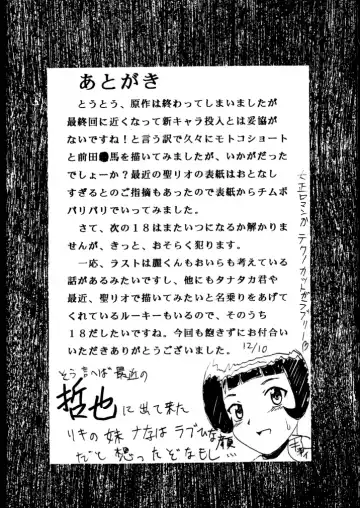 あとがき
とうとう、原作は終わってしまいましたが
最終回に近くなって新キャラ投入とは妥協が
ないですね！と言う訳で久々にモトコショート
と前田●馬を描いてみましたが、いかがだった
でしょーか？最近の聖リオの表紙はおとなし
すぎるとのご指摘もあったので表紙からチムポ
バリバリでいってみました。
さて、次の１８はまたいつになるか解かりま
せんが、きっと、おそらく犯ります。
一応、ラストは麗くんもおいらも考えている
話があるみたいですし、他にもタナタカ君や
最近、聖リオで描いてみたいと名乗りをあげて
くれているルーキーもいるので、そのうち
１８だしたいですね。今回も飽きずにお付合い
いただきありがとうございました。
12/10
大正ロマンか テクノカットがラブリー
そう言へば最近の
哲也に出て来た
リキの妹ナナはラブひな顔
だと想ったぞなもし…